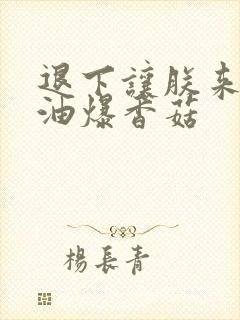 退下讓朕来
油爆香菇
楊長青